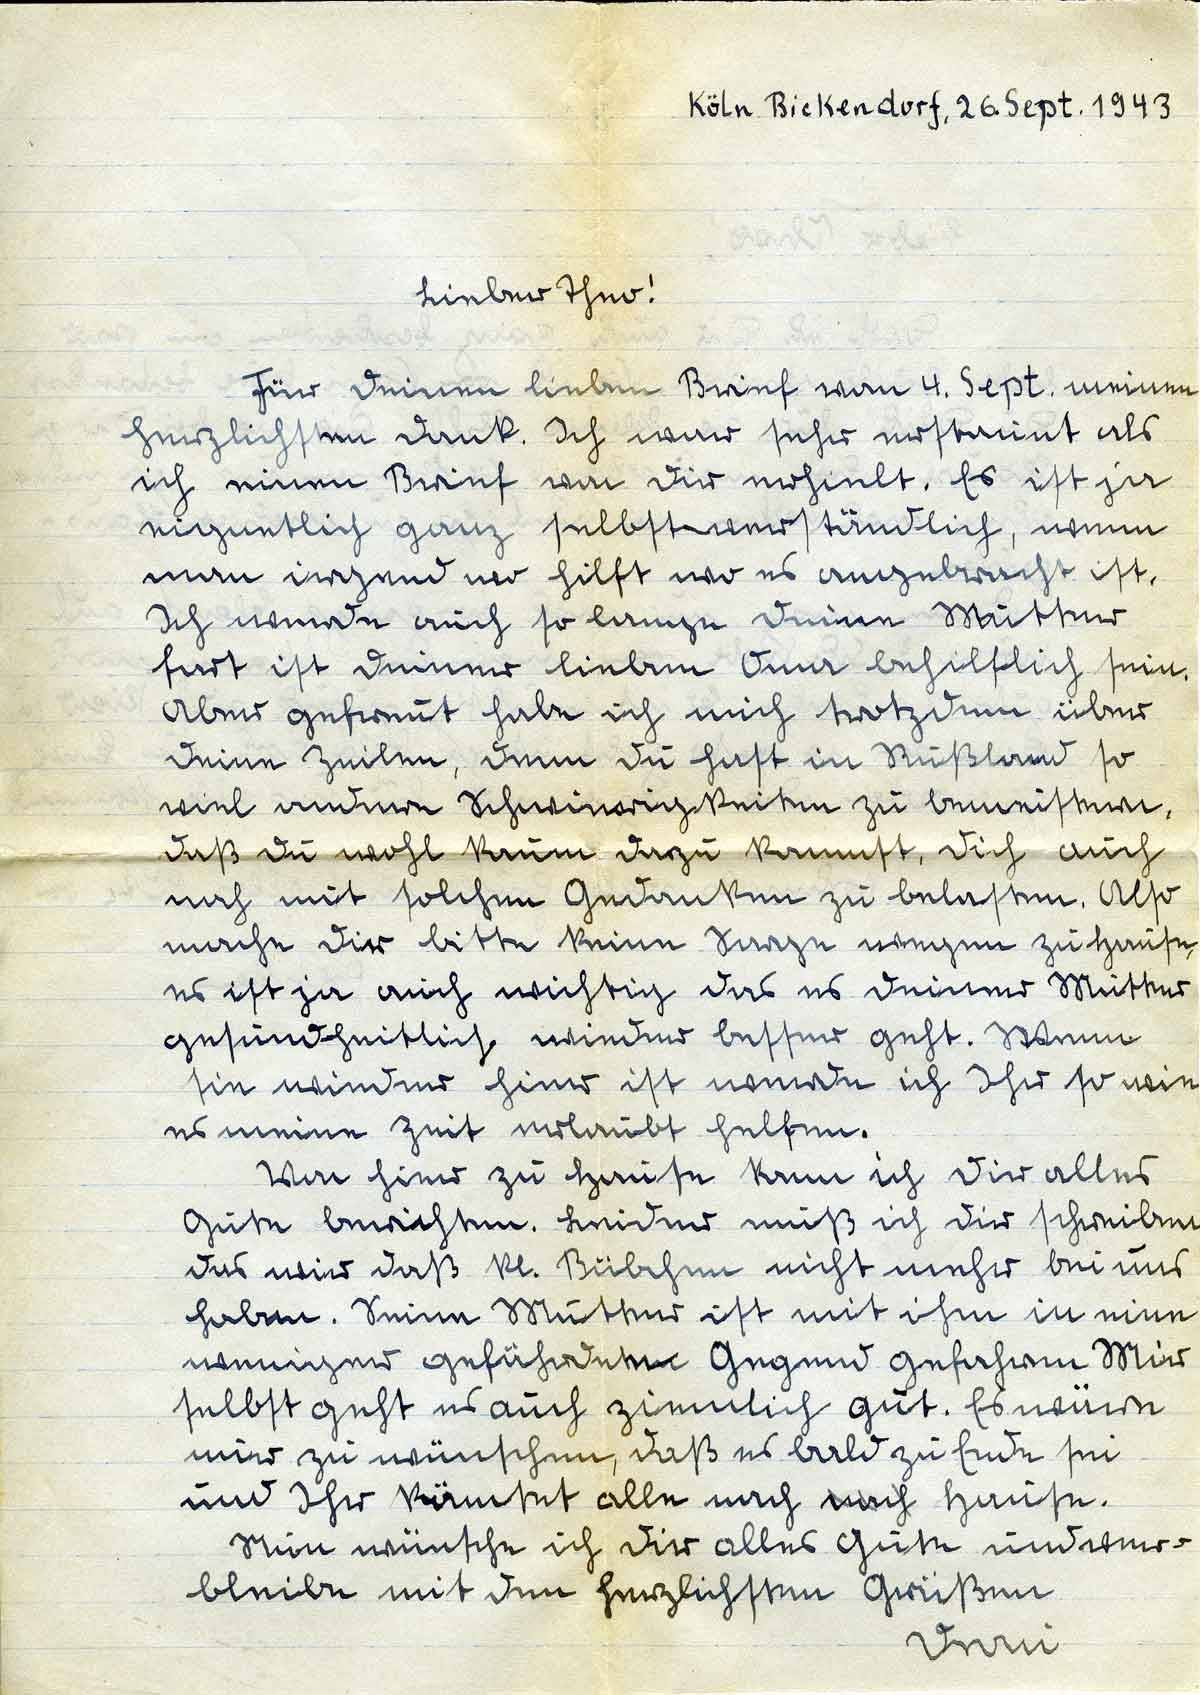 Köln Bickendorf, 26. Sept. 1943
Lieber Theo!
Für Deinen lieben Brief von 4. Sept. meinen
herzlichsten Dank. Ich war sehr erstaunt als
ich einen Brief von Dir erhielt. Es ist ja
eigentlich ganz selbstverständlich, wenn
man irgend wo hilft wo es angebracht ist.
Ich werde auch so lange Deine Mutter
fort ist Deiner lieben Oma behilflich sein.
Aber gefreut habe ich mich trotzdem über
Deine Zeilen, denn Du hast in Rußland so
viel andere Schwierigkeiten zu bemeistern,
daß Du wohl kaum dazu kommst, Dich auch
noch mit solchen Gedanken zu belasten. Also
mache Dir bitte keine Sorge wegen zu Hause,
es ist ja auch wichtig das es Deiner Mutter
gesundheitlich wieder besser geht. Wenn
sie wieder hier ist werde ich Ihr so wie
es meine Zeit erlaubt helfen.
Von hier zu Hause kann ich Dir alles
Gute berichten. Leider muß ich Dir schreiben
das wir daß kl. Bübchen nicht mehr bei uns
haben. Seine Mutter ist mit ihm in eine
weniger gefährdete Gegend gefahren Mir
selbst geht es auch ziemlich gut. Es wäre
nur zu wünschen, daß es bald zu Ende sei
und Ihr kämtet alle nach Hause.
Nun wünsche ich Dir alles Gute und ver-
bleibe mit den herzlichsten Grüßen